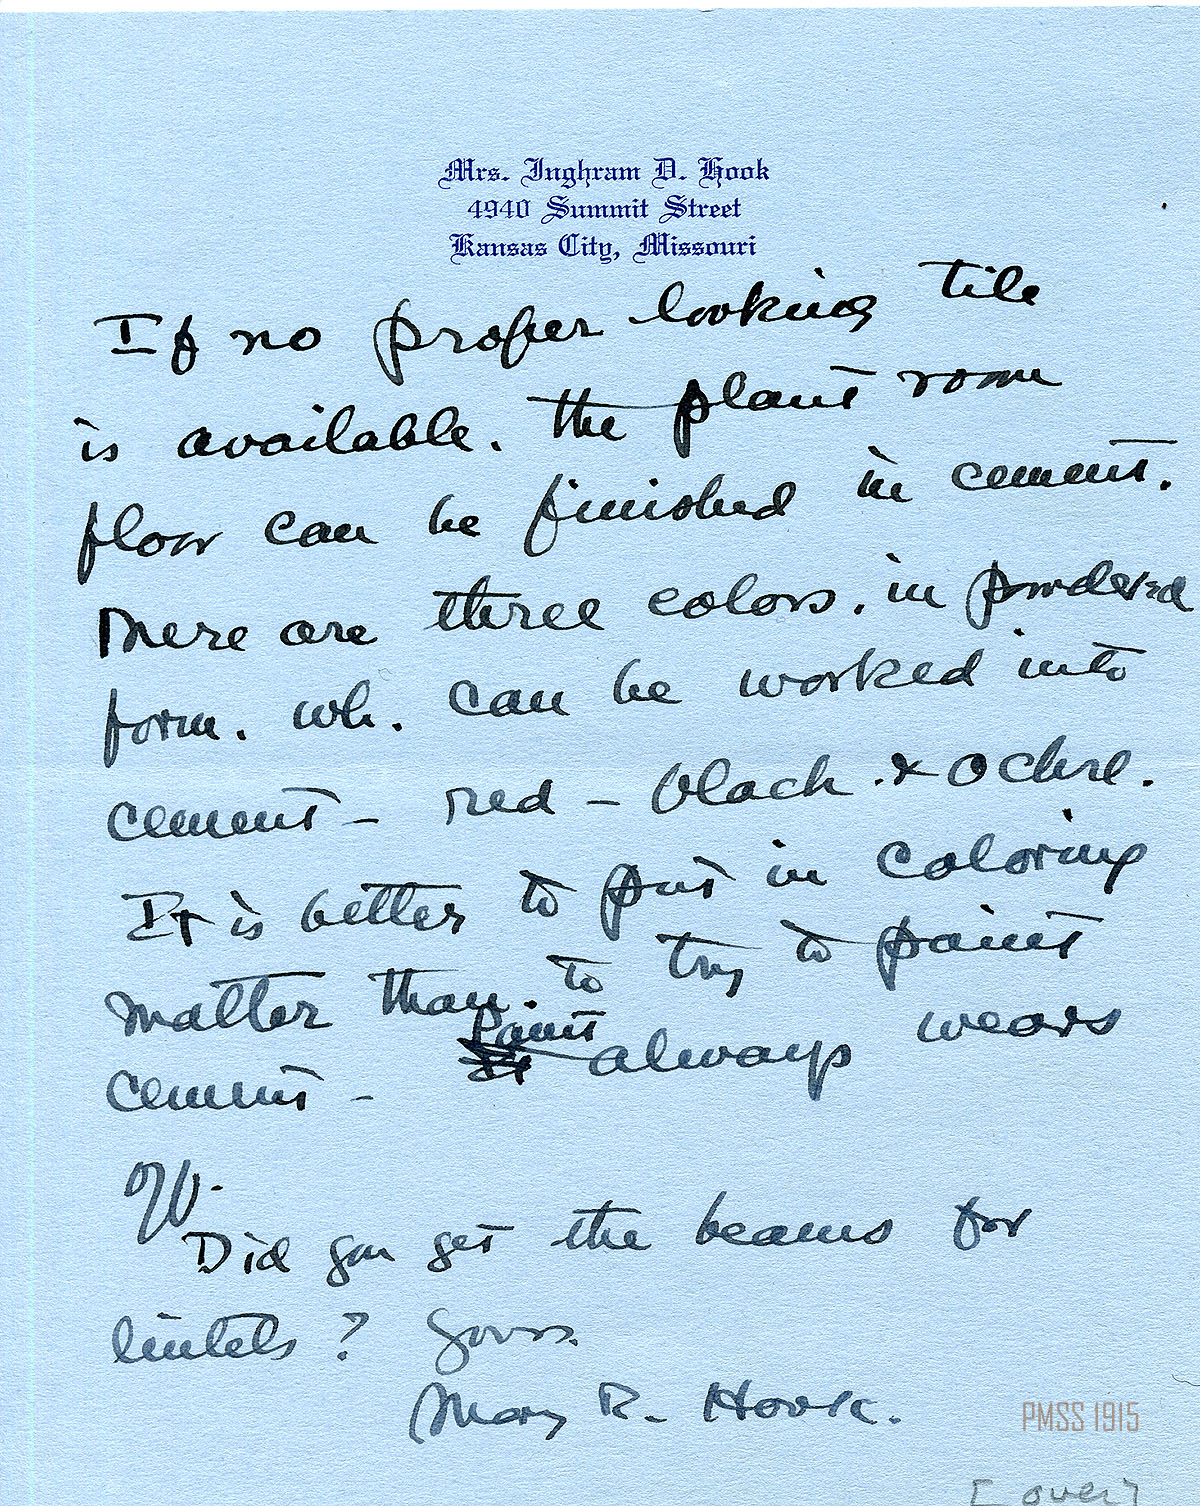 Mrs. Inghram D. Hook
4940 Summit Street
Kansas City, Missouri
If no proper looking tile
is available. the plant room
floor can be finished in cement.
There are three colors. in powdered
form. wh. can be worked into
cement - red - black & ochre.
It is better to put in coloring
matter than to try to paint
cement - Paint always wears
Did you get the beams for
lintels? Yours
Mary R. Hook.
PMSS 1915
[over]